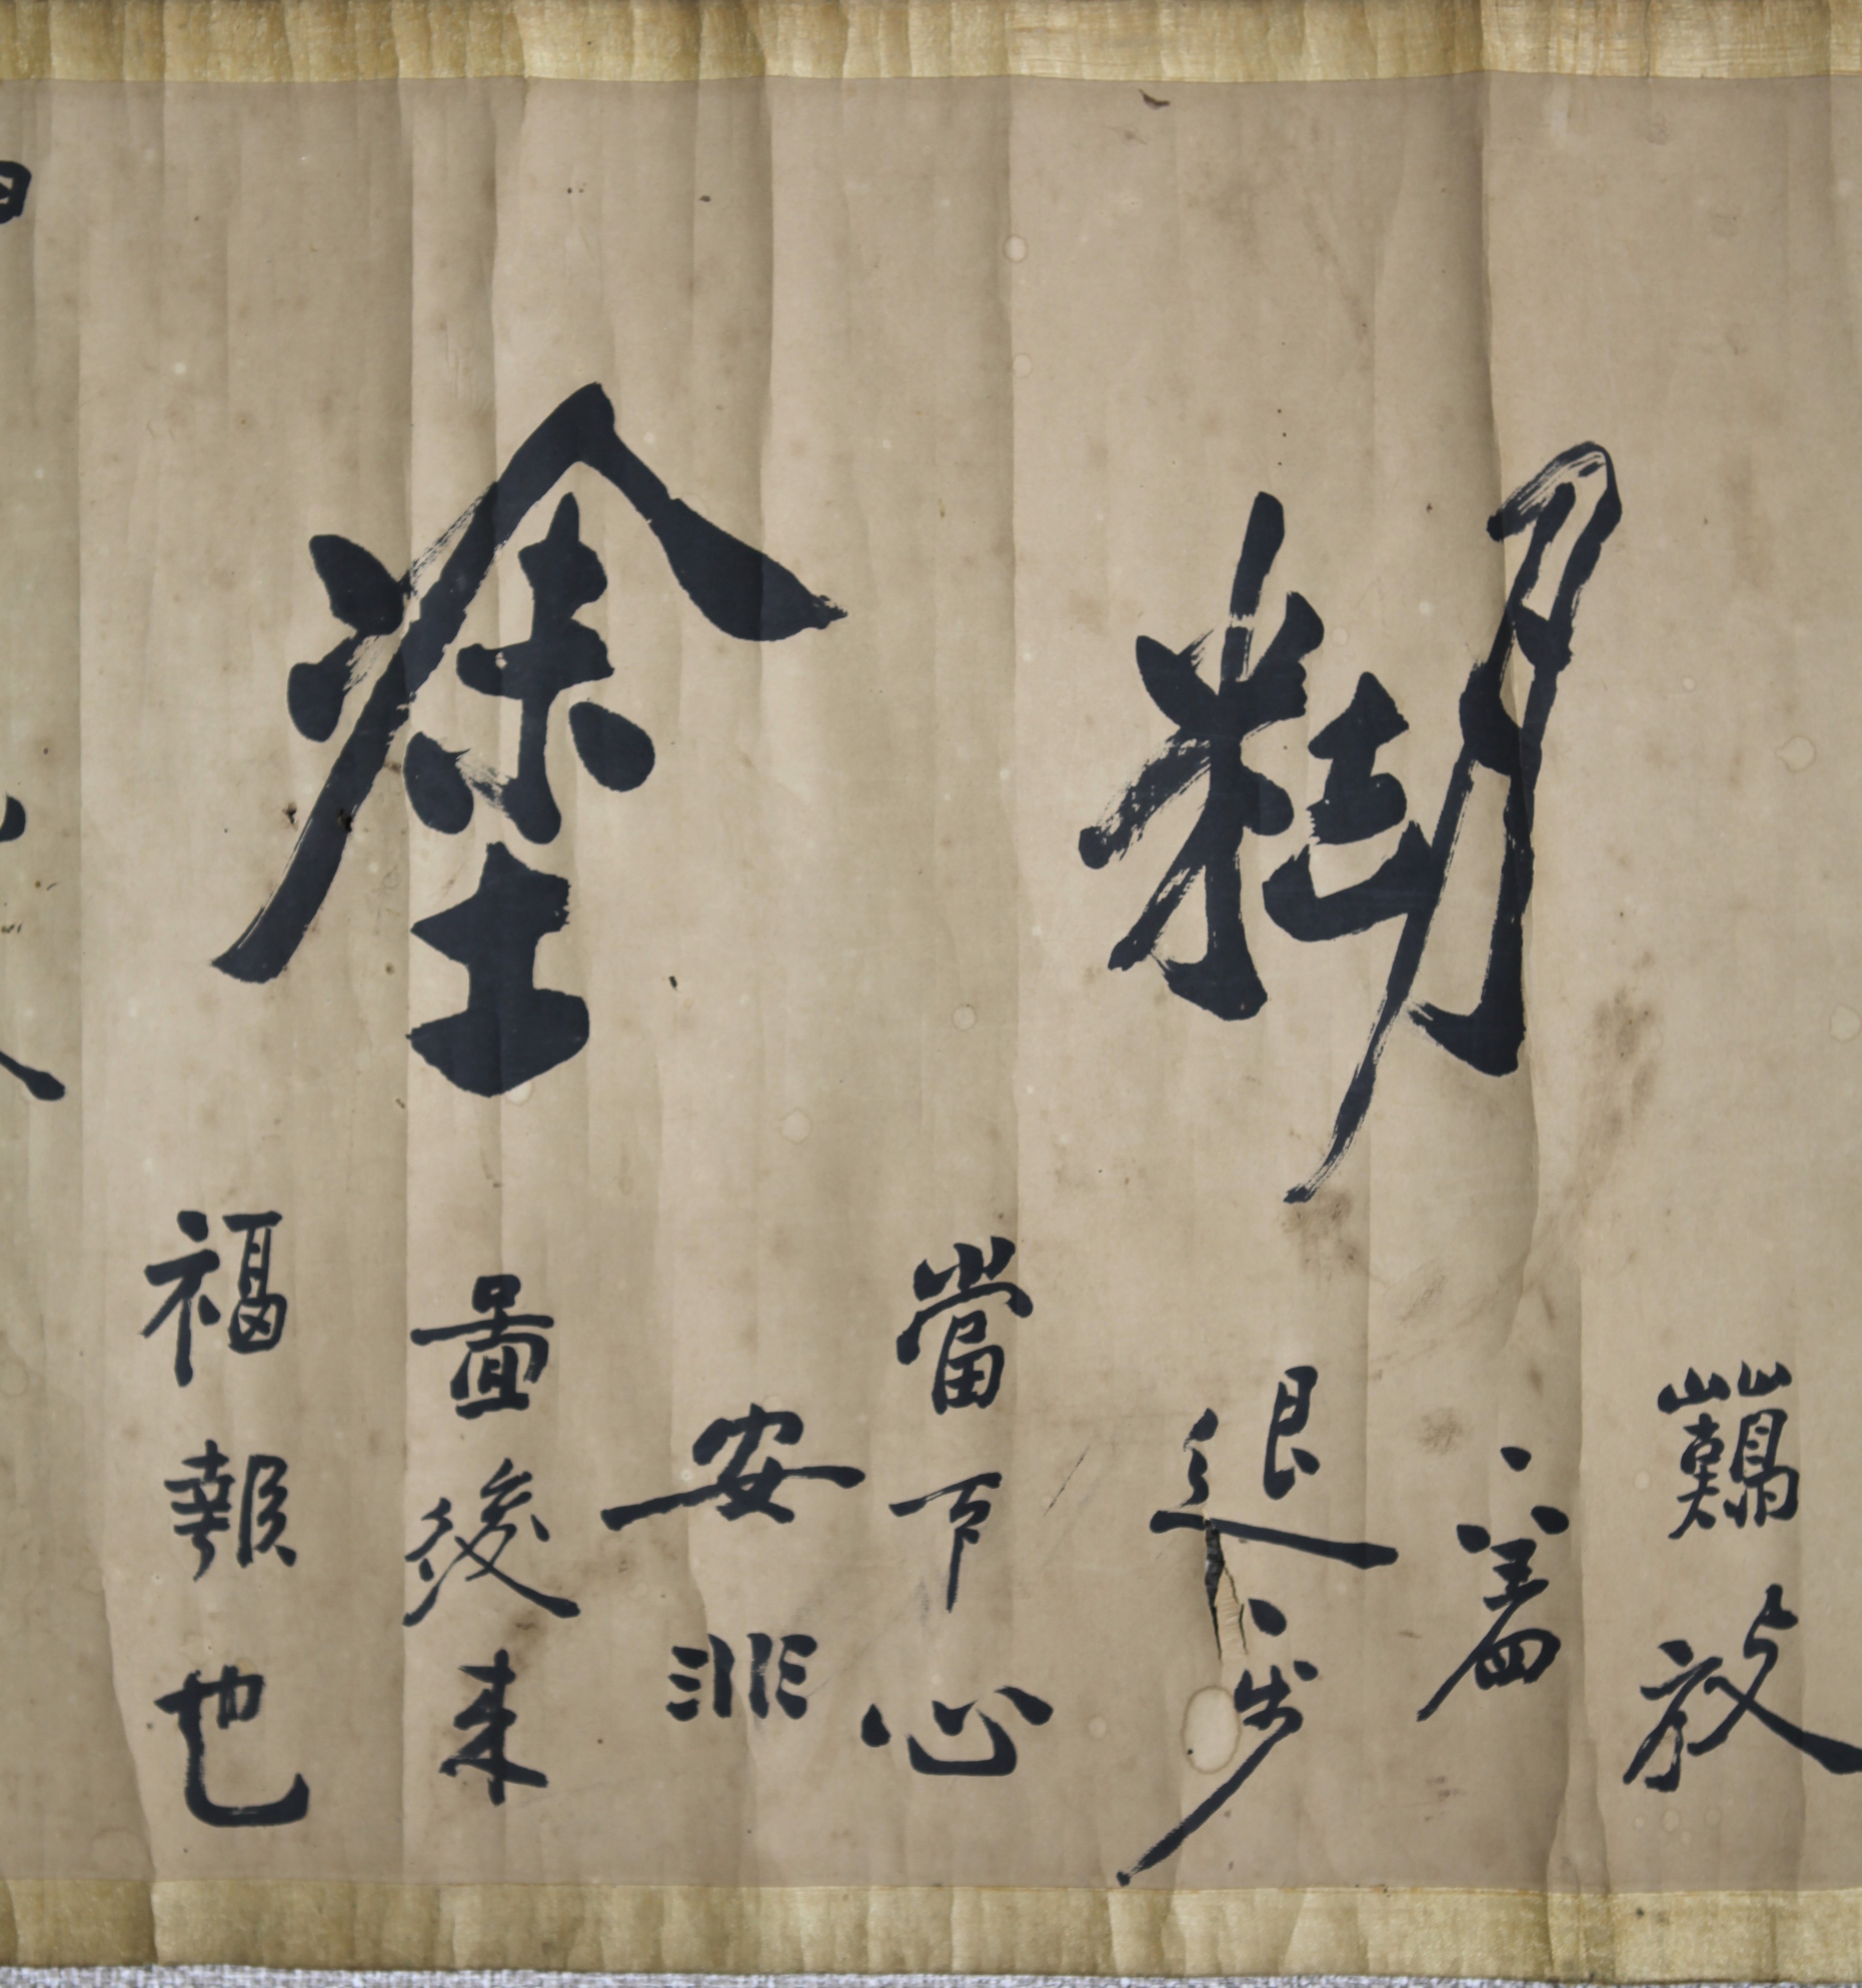 糊塗
難放
一着
退一步
當下心
安非
啚後来
福報也